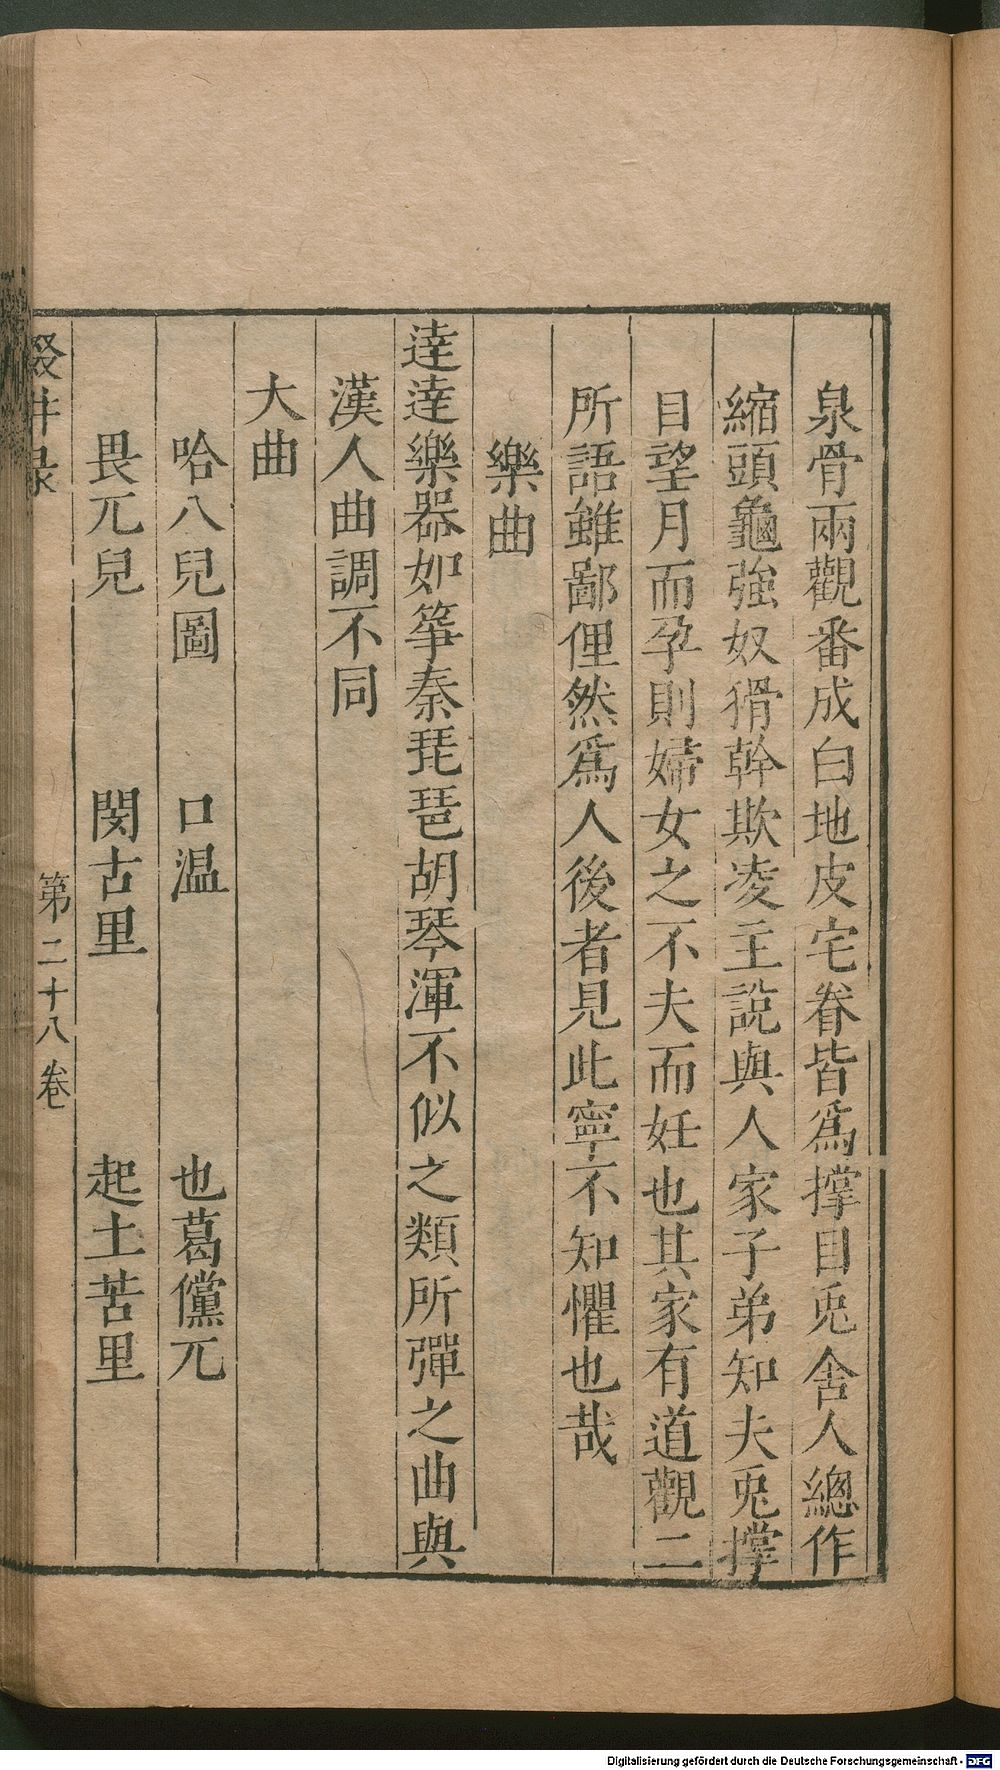 泉骨兩觀番成白地皮宅眷皆爲撑目兎舍人總作
縮頭龜強奴猾幹欺凌主說與人家子弟知夫兎撑
目望月而孕則婦女之不夫而妊也其家有道觀二
所語雖鄙俚然爲人後者見此寧不知懼也哉
樂曲
逹逹樂器如筝秦琵琶胡琴渾不似之類所彈之曲與
漢人曲調不同
大曲
哈八兒圖 口温 也葛儻兀
畏兀兒 閔古里 起土苦里
輟耕录 第二十八卷
Digitalisierung gefördert durch die Deutsche Forschungsgemeinschaft - DFG